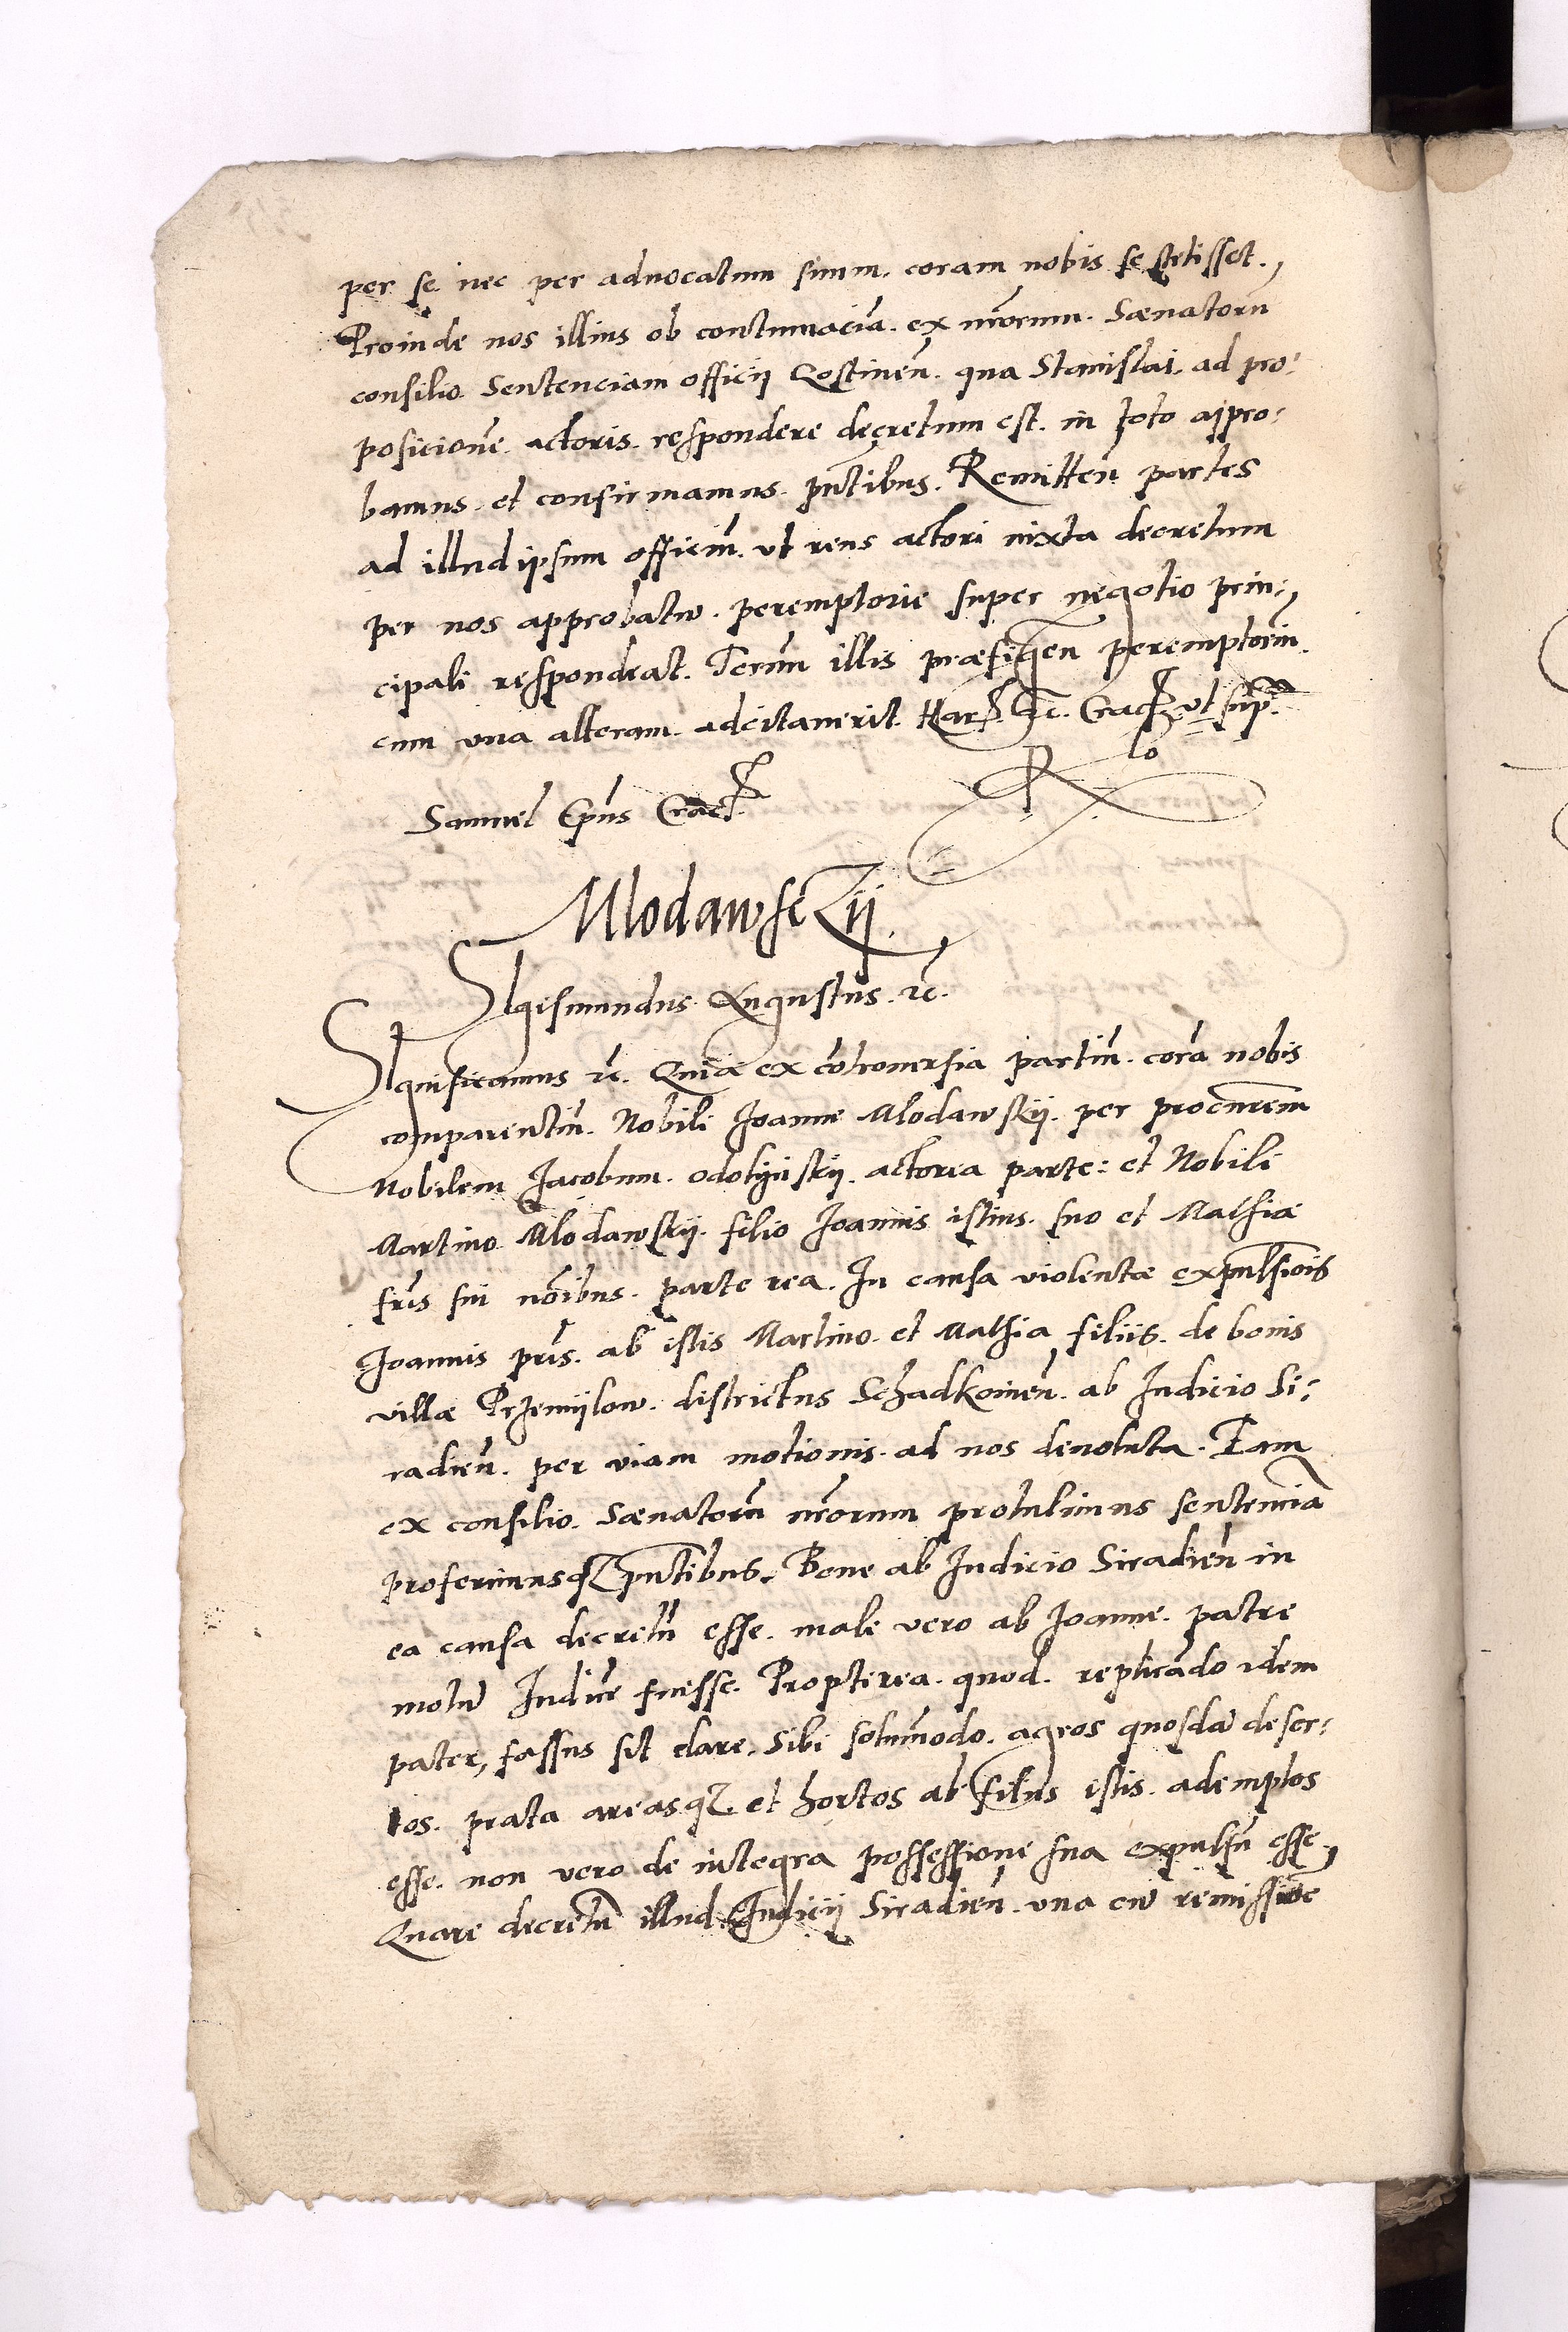 per se nec per aduocatum suum. coram nobis se stetisset.,
Proinde nos illius ob contumaciã. ex nrõrum. Sænatorũ
consilio. Sentenciam officij Gostinen̄. qua Stanislai. ad pro:
posicionẽ. actoris. respondere decretum est. in toto appro:
bamus. et confirmamus. pñtibus. Remitten̄ partes
ad illud ipsum officiũ. vt reus actori iuxta decretum
per nos approbatũ. peremptorie super negotio prin:,
cipali respondeat. Termĩ illis præfigen̄ peremptoriũ.
cum vna alteram. adcitauerit. Har. &c. Crac. vt sup̃.
Samuel Ep̃us Crac.
Mlodawsczij.
Sigismundus Augustus. &c̃.
Significamus &c̃. Quia ex cõtrouersia partiũ. corã nobis
comparentiũ. Nobili Joanne Mlodawskij. per procurem̃
Nobilem Jacobum. Odolijnskij. actorea parte: et Nobili
Martino Mlodawskij. filio Joannis istius. suo et Mathiæ
fr̃is sui nõibus. parte rea. In causa violentæ expulsiõis
Joannis pr̃is. ab istis Martino. et Mathia filijs. de bonis
villæ Przemijlow. districtus Schadkouien̄. ab Judicio Si:
radien̄. per viam motionis. ad nos deuoluta. Tam
ex consilio. Sænatorũ nrõrum protulimus sentenciã
proferimusq₃ pñtibus. Bene ab Judicio Siradien̄ in
ea causa decretũ esse. male vero ab Joanne. patre
motũ Judicẽ fuisse. Propterea. quod. replicãdo idem
pater, fassus sit clare. Sibi solummodo. agros quosdã deser:
tos. prata areasq₃ et hortos ab filijs istis. ademptos
esse. non vero de integra possessione sua expulsũ esse.,
Quare decretũ illud Judicij Siradien̄. vna cũ remissiõe